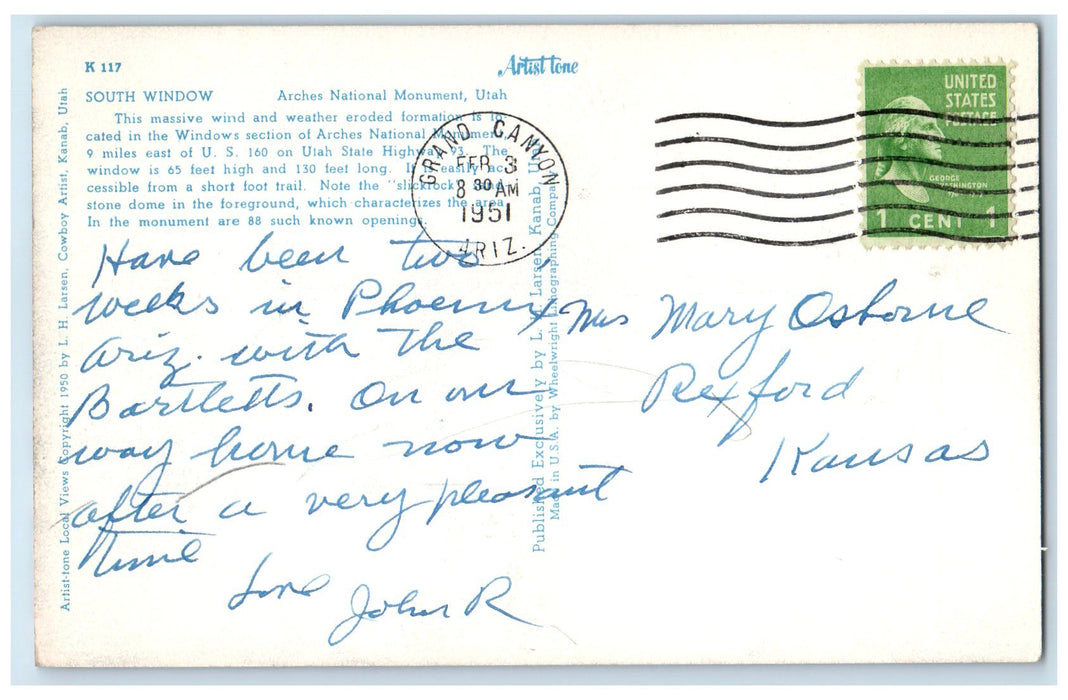 K 117
Artist tone
SOUTH WINDOW Arches National Monument, Utah
This massive wind and weather eroded formation is lo-
cated in the Windows section of Arches National Monument,
9 miles east of U. S. 160 on Utah State Highway 93. The
window is 65 feet high and 130 feet long. It is easily ac-
cessible from a short foot trail. Note the "slickrock"
stone dome in the foreground, which characterizes the area.
In the monument are 88 such known openings.
GRAND CANYON
FEB 3
8 30 AM
1951
ARIZ.
UNITED
STATES
POSTAGE
GEORGE
WASHINGTON
1 CENT 1
Have been two
weeks in Phoenix
Ariz. with the
Bartletts. On our
way home now
after a very pleasant
time
Love
John R
Mrs Mary Osborne
Rexford
Kansas
Artist-tone Local Views Copyright 1950 by L. H. Larsen, Cowboy Artist, Kanab, Utah
Published Exclusively by L. H. Larsen, Kanab, Utah
Made in U.S.A. by Wheelwright Lithographing Company